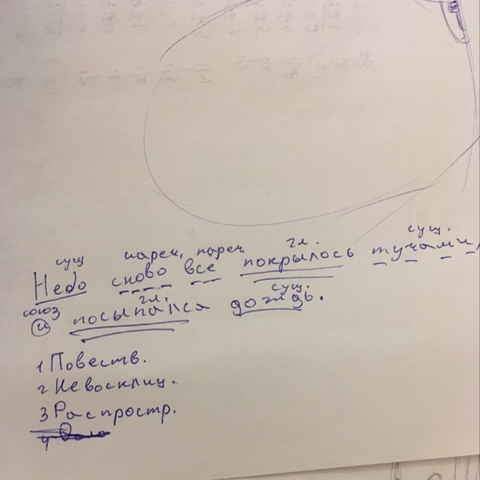 сущ нареч. нареч гл. сущ.
Небо снова все покрылось тучами,
союз гл. сущ.
и посыпался дождь.
1 Повеств.
2 Невосклиц.
3 Распростр.